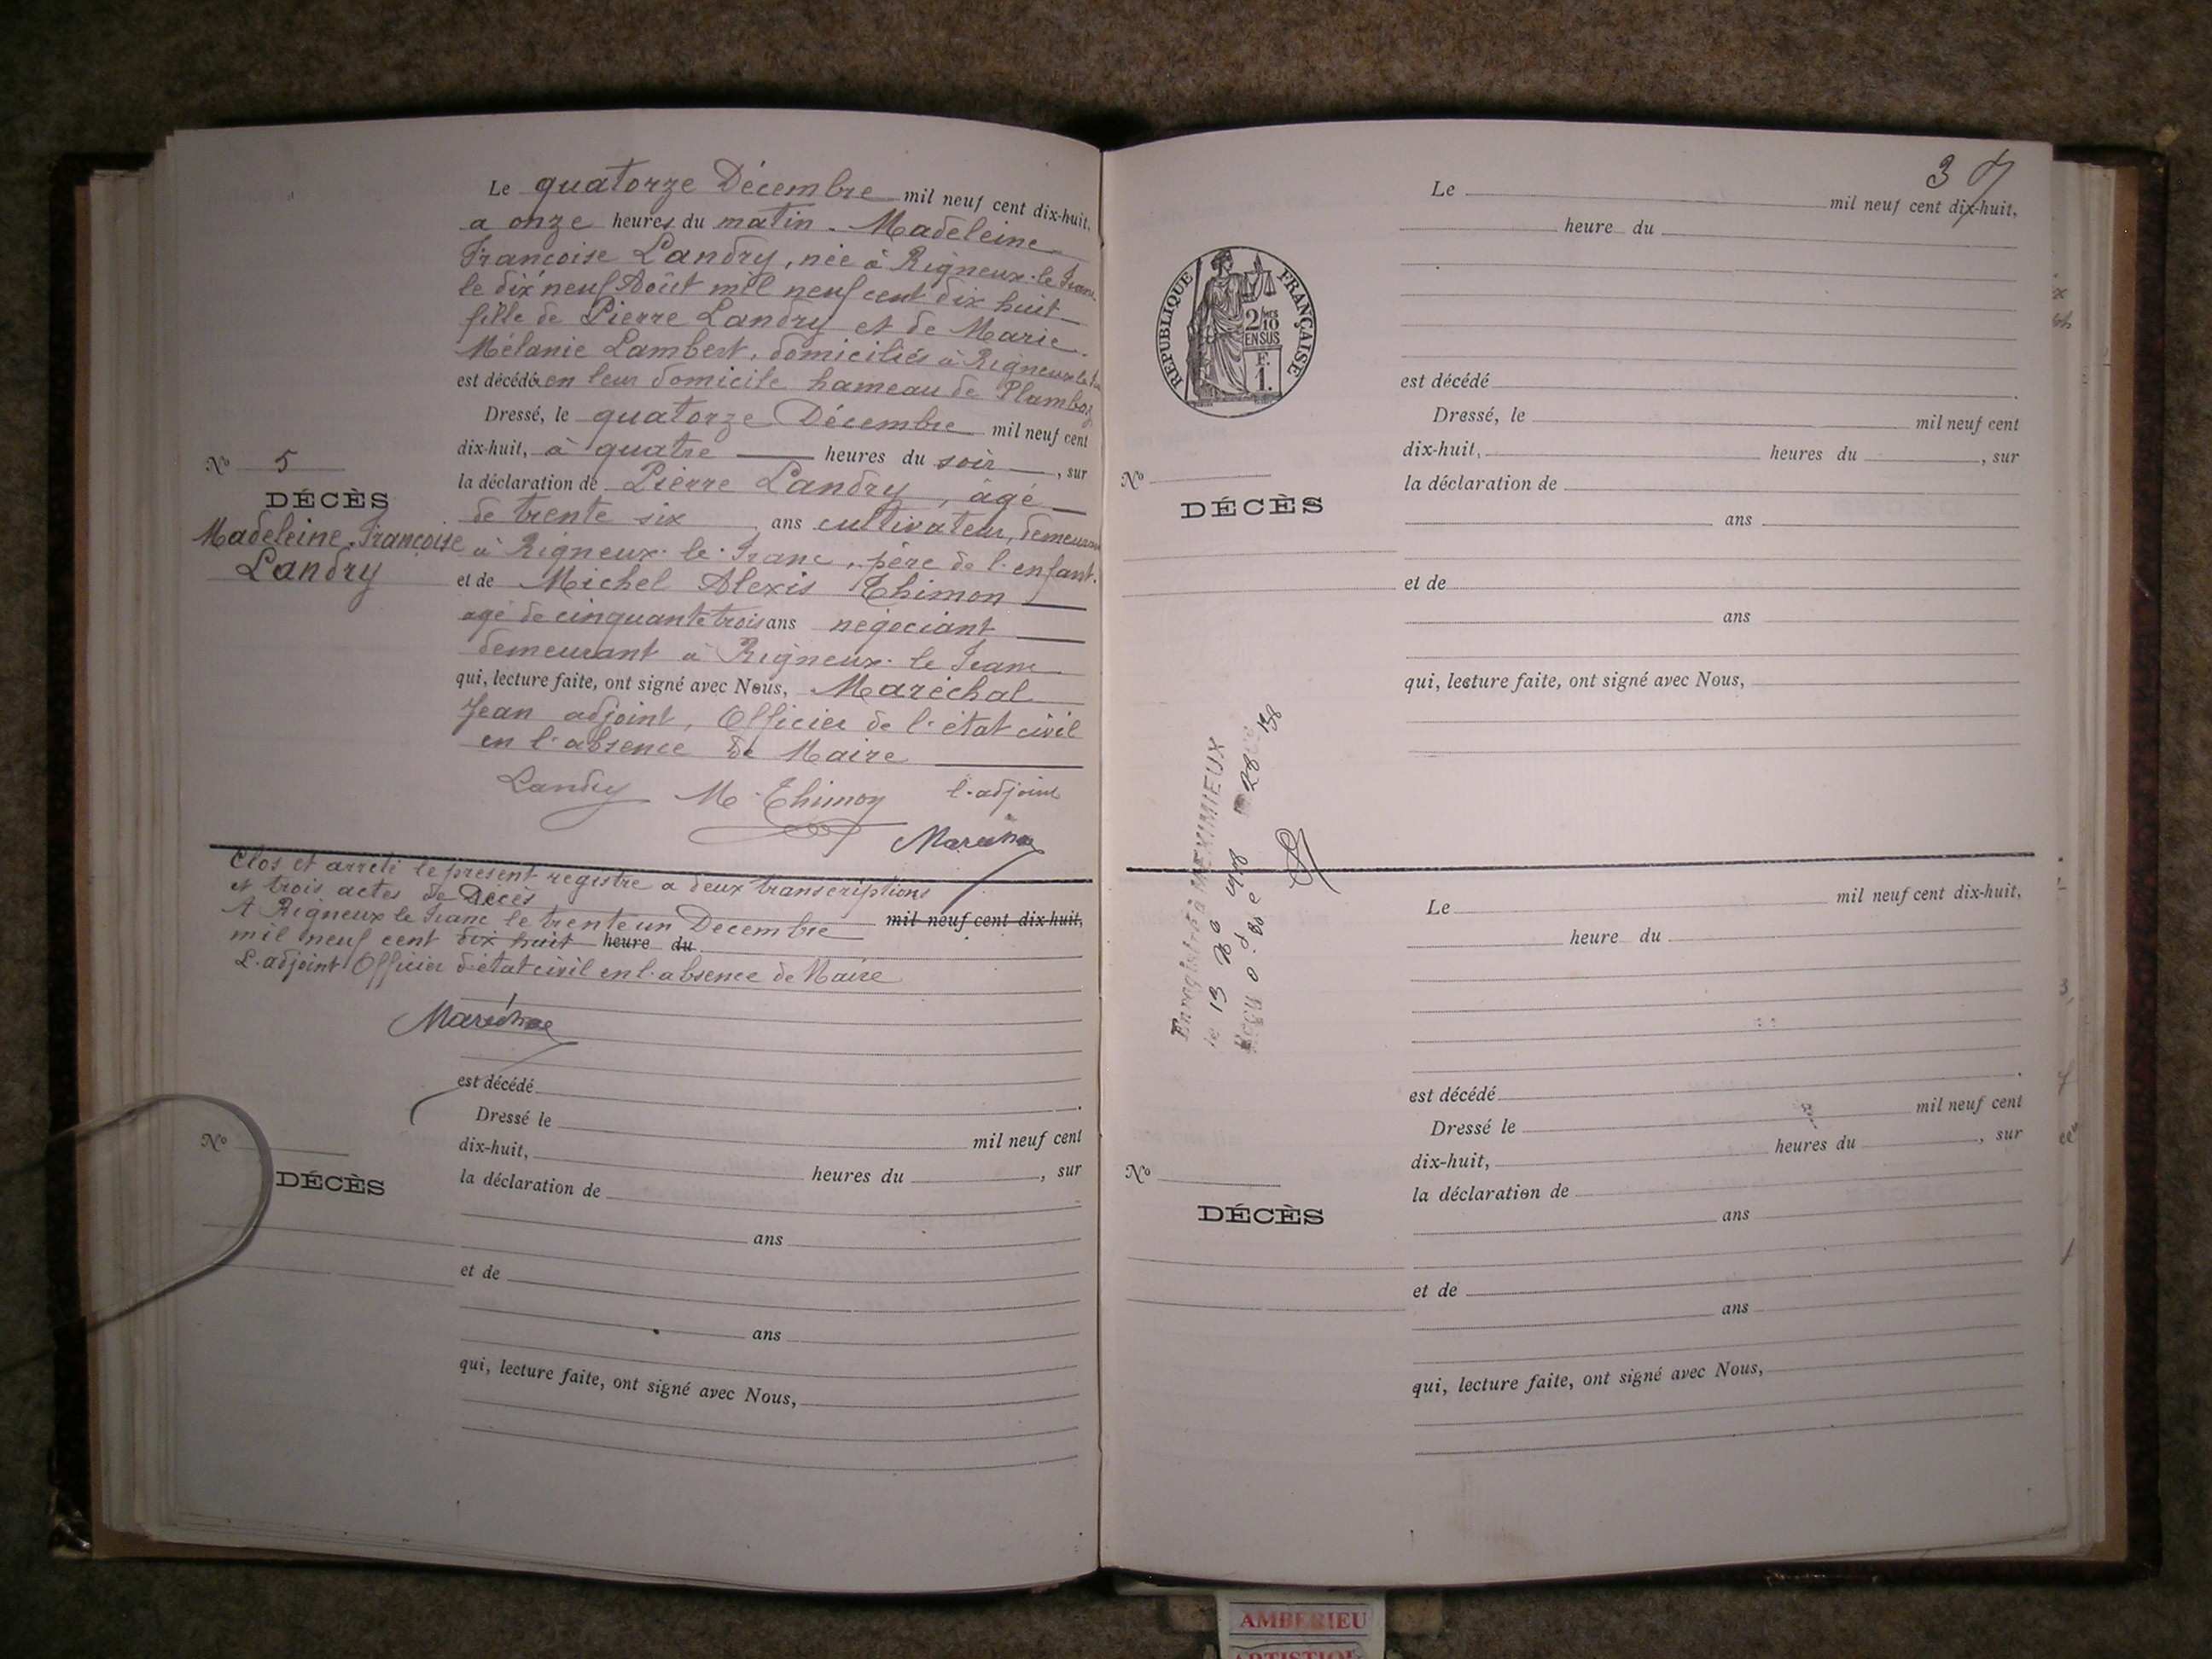 Le quatorze Décembre mil neuf cent dix-huit,
a onze heures du matin. Madeleine
Françoise Landry, née à Rigneux-le-Franc
le dix neuf Août mil neuf cent dix huit
fille de Pierre Landry et de Marie
Mélanie Lambert, domiciliés à Rigneux le
est décédée en leur domicile hameau de Plamboz
Dressé, le quatorze Décembre mil neuf cent
dix-huit, à quatre heures du soir, sur
la déclaration de Pierre Landry, âgé
de trente six, ans cultivateur, demeurant
à Rigneux-le-Franc, père de l'enfant.
et de Michel Alexis Thimon
agé de cinquante trois ans négociant
demeurant à Rigneux-le Franc
qui, lecture faite, ont signé avec Nous, Maréchal
Jean adjoint, Officier de l'état civil
en l'absence de Maire
Landry M. Thimon l'adjoint
Maréchal
No 5
DÉCÈS
Madeleine-Françoise
Landry
Clos et arrêté le présent registre a deux transcriptions
et trois actes de Décès
A Rigneux le Franc le trente un Décembre mil neuf cent dix-huit,
mil neuf cent dix huit heure du
L'adjoint Officier d'état civil en l'absence de Maire
Maréchal
est décédé
Dressé le mil neuf cent
dix-huit, heures du , sur
la déclaration de
ans
et de
ans
qui, lecture faite, ont signé avec Nous,
No
DÉCÈS
3
Le mil neuf cent dix-huit,
heure du
RÉPUBLIQUE FRANÇAISE
2/10
EN SUS
F.
1.
est décédé
Dressé, le mil neuf cent
dix-huit, heures du , sur
la déclaration de
ans
et de
ans
qui, lecture faite, ont signé avec Nous,
No
DÉCÈS
Enregistré à MEXIMIEUX
le 13
Reçu
Le mil neuf cent dix-huit,
heure du
est décédé
Dressé le mil neuf cent
dix-huit, heures du , sur
la déclaration de
ans
et de
ans
qui, lecture faite, ont signé avec Nous,
No
DÉCÈS
AMBERIEU